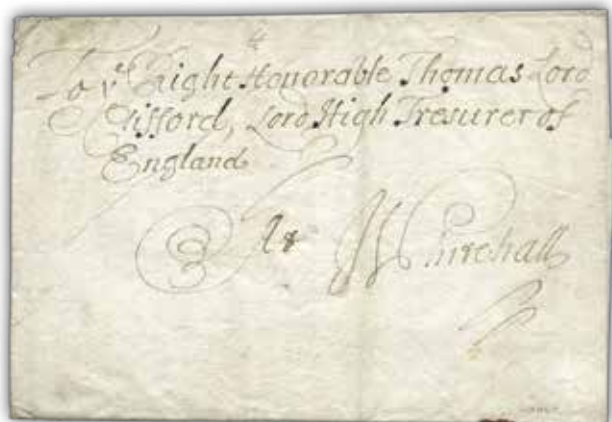 To yᵉ Right Honorable Thomas Lord
Clifford, Lord High Tresurer of
England
At Whitehall